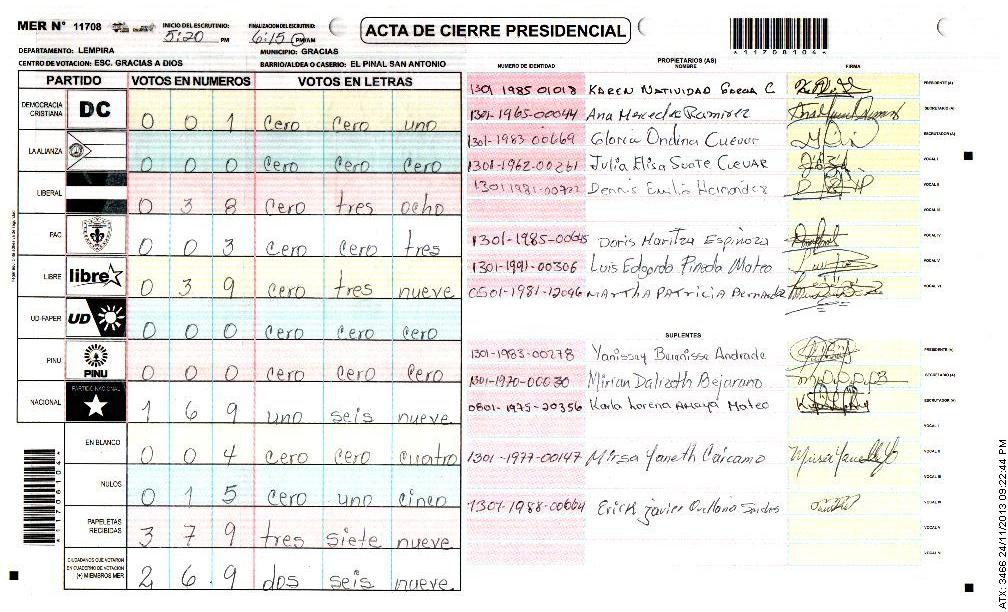 MER N° 11708
INICIO DEL ESCRUTINIO: 5:20 PM
FINALIZACION DEL ESCRUTINIO: 6:15 PM/AM
ACTA DE CIERRE PRESIDENCIAL
*11708104*
DEPARTAMENTO: LEMPIRA
MUNICIPIO: GRACIAS
CENTRO DE VOTACION: ESC. GRACIAS A DIOS
BARRIO/ALDEA O CASERIO: EL PINAL SAN ANTONIO
PARTIDO VOTOS EN NUMEROS VOTOS EN LETRAS
DEMOCRACIA CRISTIANA DC 0 0 1 cero cero uno
LA ALIANZA 0 0 0 cero cero cero
LIBERAL 0 3 8 cero tres ocho
PAC 0 0 3 cero cero tres
LIBRE libre 0 3 9 cero tres nueve
UD-FAPER UD 0 0 0 cero cero cero
PINU PINU 0 0 0 cero cero cero
NACIONAL PARTIDO NACIONAL 1 6 9 uno seis nueve
EN BLANCO 0 0 4 cero cero cuatro
NULOS 0 1 5 cero uno cinco
PAPELETAS RECIBIDAS 3 7 9 tres siete nueve
CIUDADANOS QUE VOTARON EN CUADERNO DE VOTACION (+) MIEMBROS MER 2 6 9 dos seis nueve
*11708104*
PROPIETARIOS (AS)
NUMERO DE IDENTIDAD NOMBRE FIRMA
1301 1985 01018 KAREN NATIVIDAD C PRESIDENTE (A)
1301-1965-00044 Ana Mercedes Ramirez SECRETARIO (A)
1301-1983 00669 Gloria Ondina Cuevar ESCRUTADOR (A)
1301-1962-00261 Julia Elisa CUEVAR VOCAL I
1301 1981-00722 Dennis Emilio Hernandez VOCAL II
VOCAL III
1301-1985-00645 Doris Maritza Espinoza VOCAL IV
1301-1991-00306 Luis Edgardo Pineda Mateo VOCAL V
0501-1981-12096 MARTHA PATRICIA VOCAL VI
SUPLENTES
1301-1983-00278 Andrade PRESIDENTE (A)
1301-1970-00030 Mirian Dalizeth Bejarano SECRETARIO (A)
0801-1975-20356 Karla Lorena AMAYA Mateo ESCRUTADOR (A)
VOCAL I
1301-1977-00147 Mirsa Yaneth Cárcamo VOCAL II
VOCAL III
1307-1988-00664 Erick Javier Orellana VOCAL IV
VOCAL V
VOCAL VI
ATX: 3466 24/11/2013 09:22:44 PM